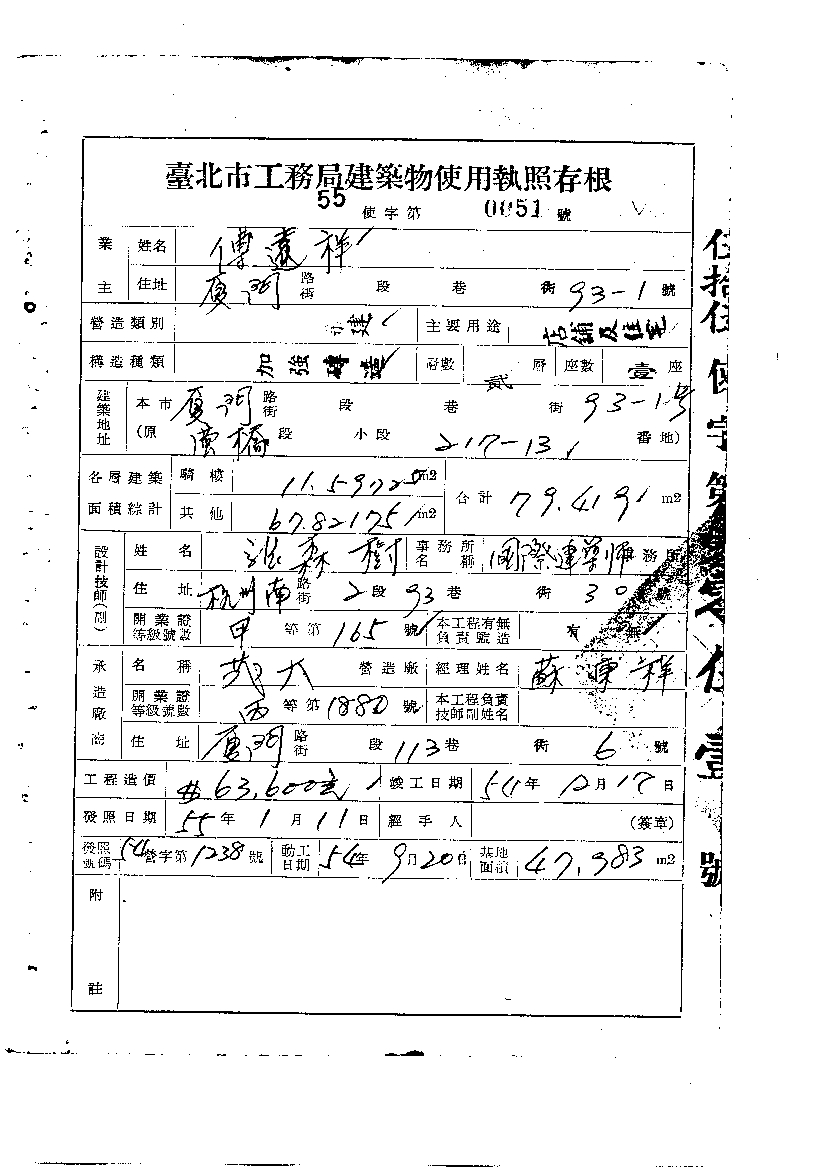 臺北市工務局建築物使用執照存根
55 使字第 0051 號
業主 姓名 傅遠祥
住址 厦門 路街 段 巷 街 93-1 號
營造類別 建 主要用途 店舖及住宅
構造種類 加強磚造 層數 貳 層 座數 壹 座
建築地址 本市 厦門 路街 段 巷 街 93-1号
(原 段 小段 217-13 番地)
各層建築面積綜計 騎樓 11.59725 m2 合計 79.419 m2
其他 67.82175 m2
設計技師(副) 姓名 森樹 事務所名稱 國際建築師 務所
住址 杭州南 路街 2 段 93 巷 街 30 號
開業證等級號數 甲 等第 165 號 本工程有無負責監造 有 無
承造廠商 名稱 大 營造廠 經理姓名 蘇 祥
開業證等級號數 丙 等第 1880 號 本工程負責技師副姓名
住址 厦門 路街 段 113 巷 街 6 號
工程造價 63,600元 竣工日期 54年 12月 17日
發照日期 55年 1月 11日 經手人 (簽章)
發照號碼 54 營字第 1238 號 動工日期 54年 9月 20日 基地面積 47.383 m2
附註
伍拾伍使字第 伍壹號